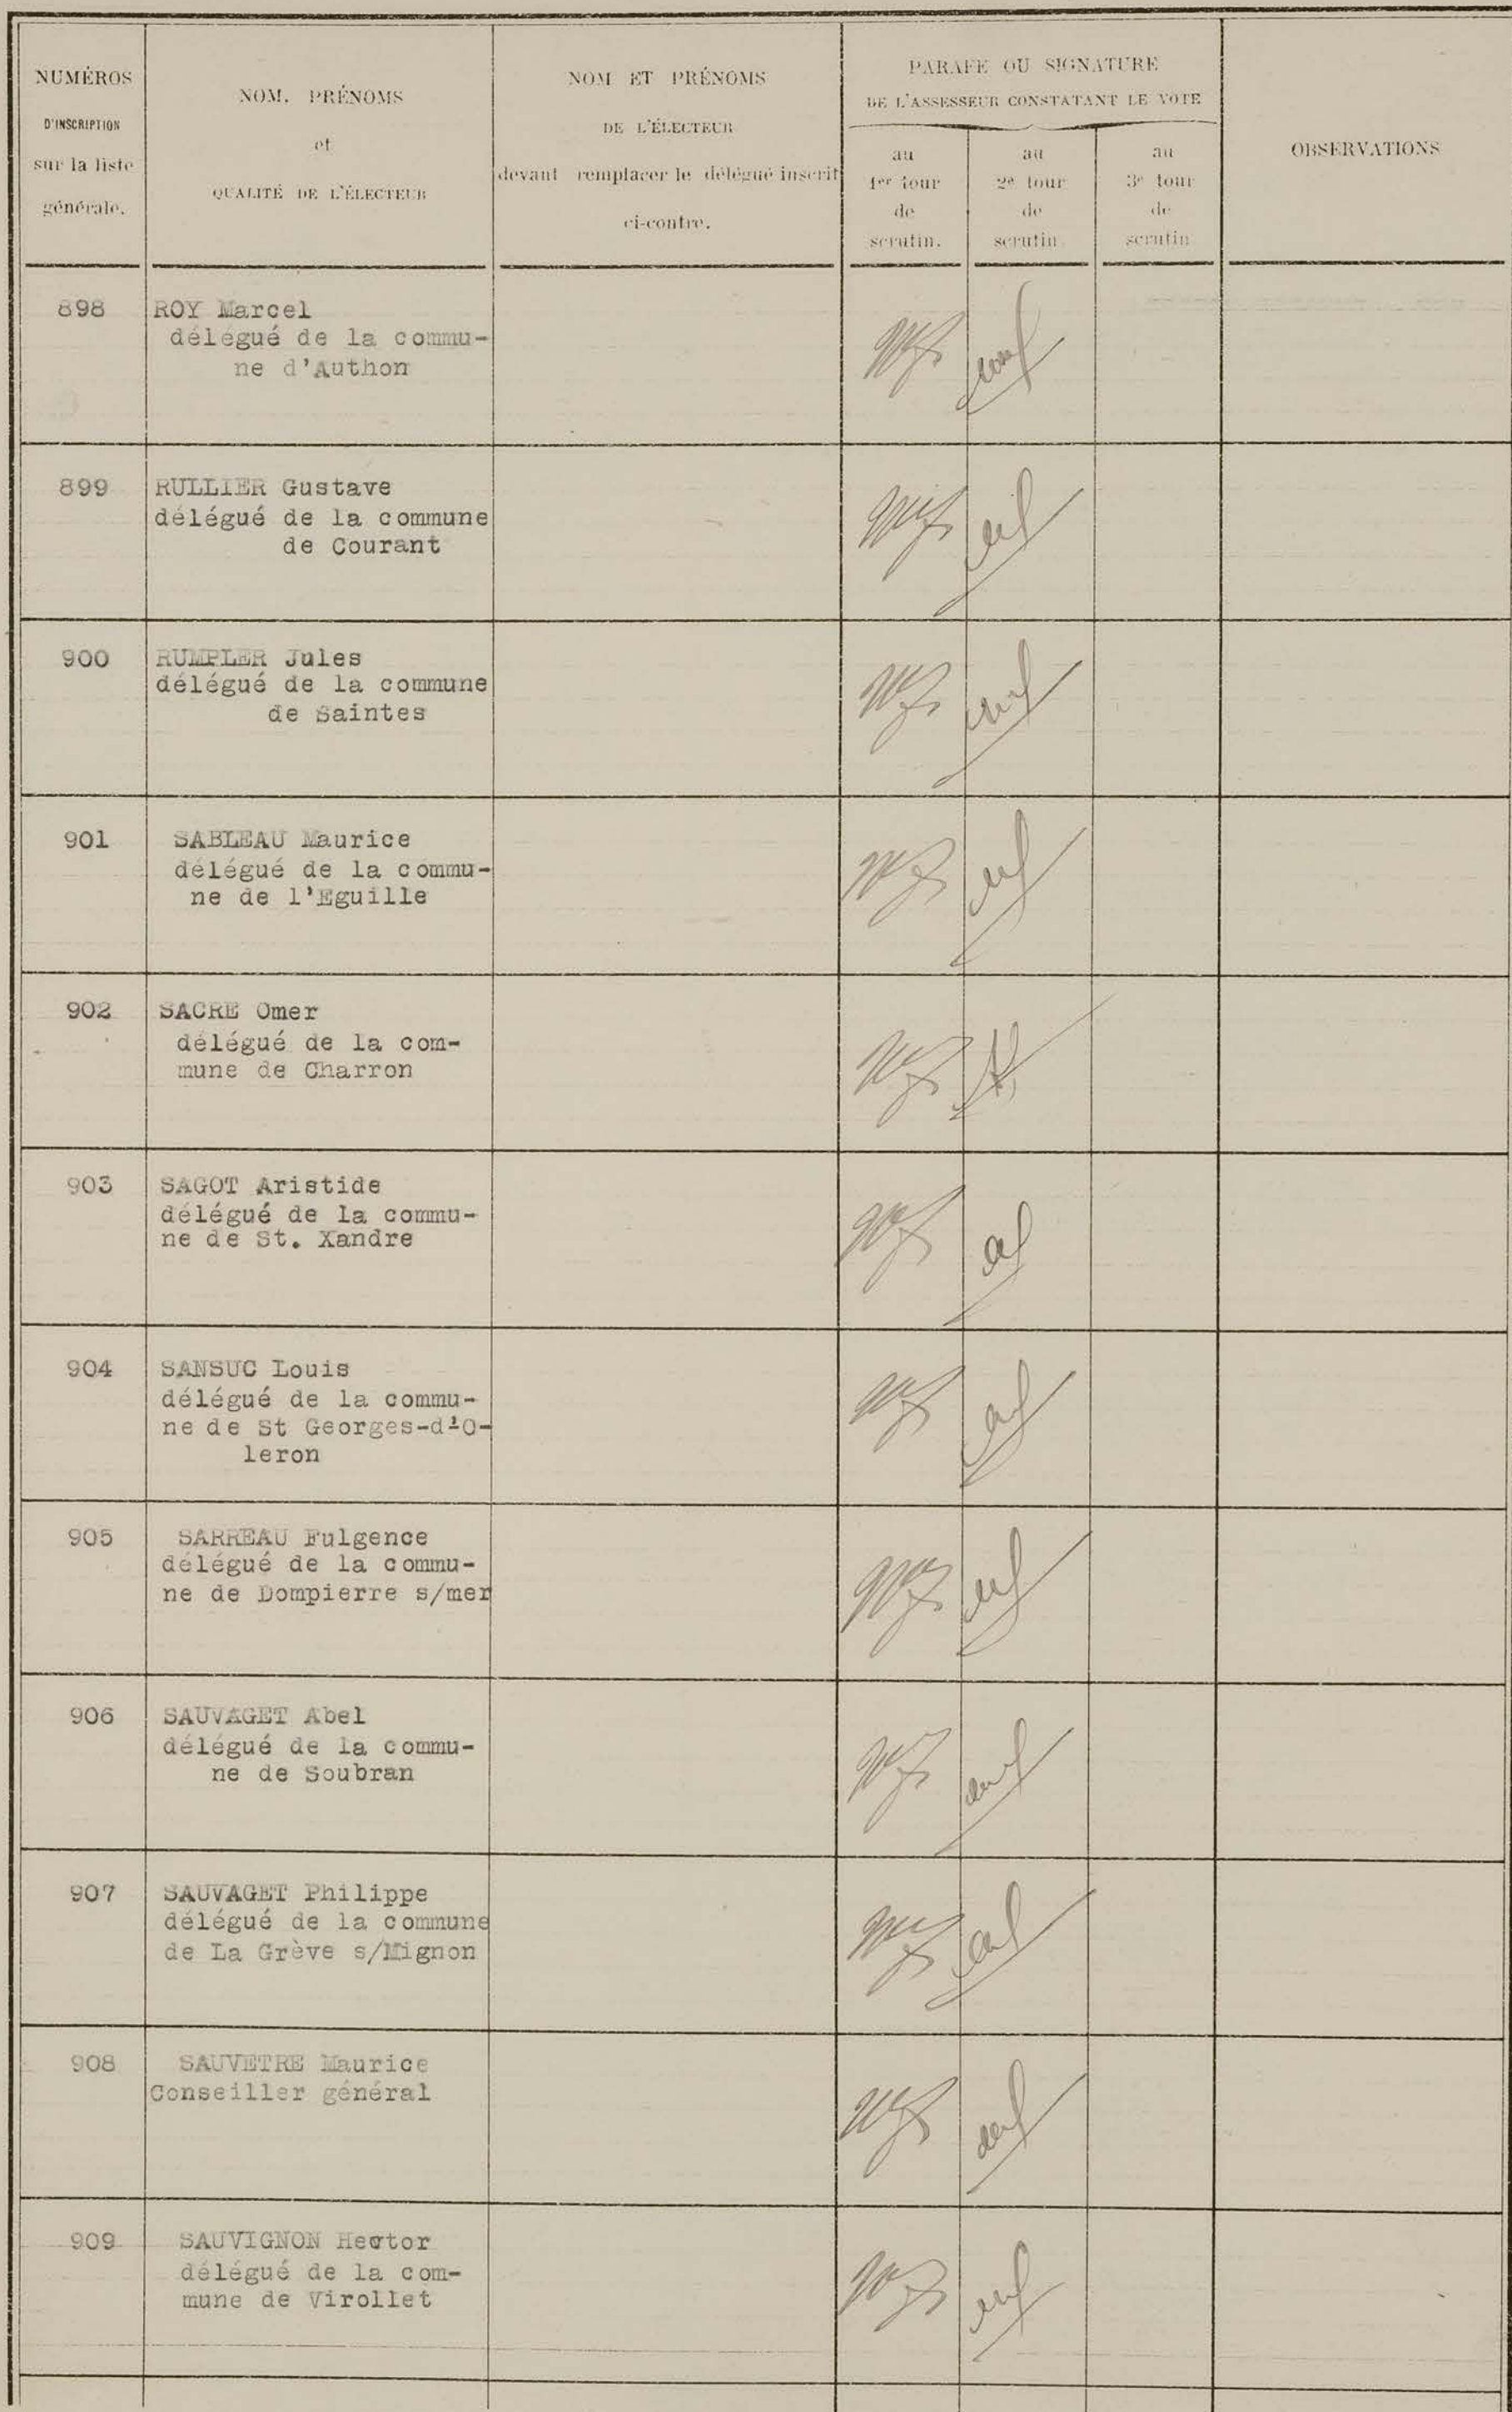 NUMÉROS
D'INSCRIPTION
sur la liste
générale.
NOM, PRÉNOMS
et
QUALITÉ DE L'ÉLECTEUR
NOM ET PRÉNOMS
DE L'ÉLECTEUR
devant remplacer le délégué inscrit
ci-contre.
PARAFE OU SIGNATURE
DE L'ASSESSEUR CONSTATANT LE VOTE
au
1er tour
de
scrutin.
au
2e tour
de
scrutin
au
3e tour
de
scrutin
OBSERVATIONS
898
ROY Marcel
délégué de la commu-
ne d'Authon
899
RULLIER Gustave
délégué de la commune
de Courant
900
RUMPLER Jules
délégué de la commune
de Saintes
901
SABLEAU Maurice
délégué de la commu-
ne de l'Eguille
902
SACRE Omer
délégué de la com-
mune de Charron
903
SAGOT Aristide
délégué de la commu-
ne de St. Xandre
904
SANSUC Louis
délégué de la commu-
ne de St Georges-d'O-
leron
905
SARREAU Fulgence
délégué de la commu-
ne de Dompierre s/mer
906
SAUVAGET Abel
délégué de la commu-
ne de Soubran
907
SAUVAGET Philippe
délégué de la commune
de La Grève s/Mignon
908
SAUVETRE Maurice
Conseiller général
909
SAUVIGNON Hector
délégué de la com-
mune de Virollet